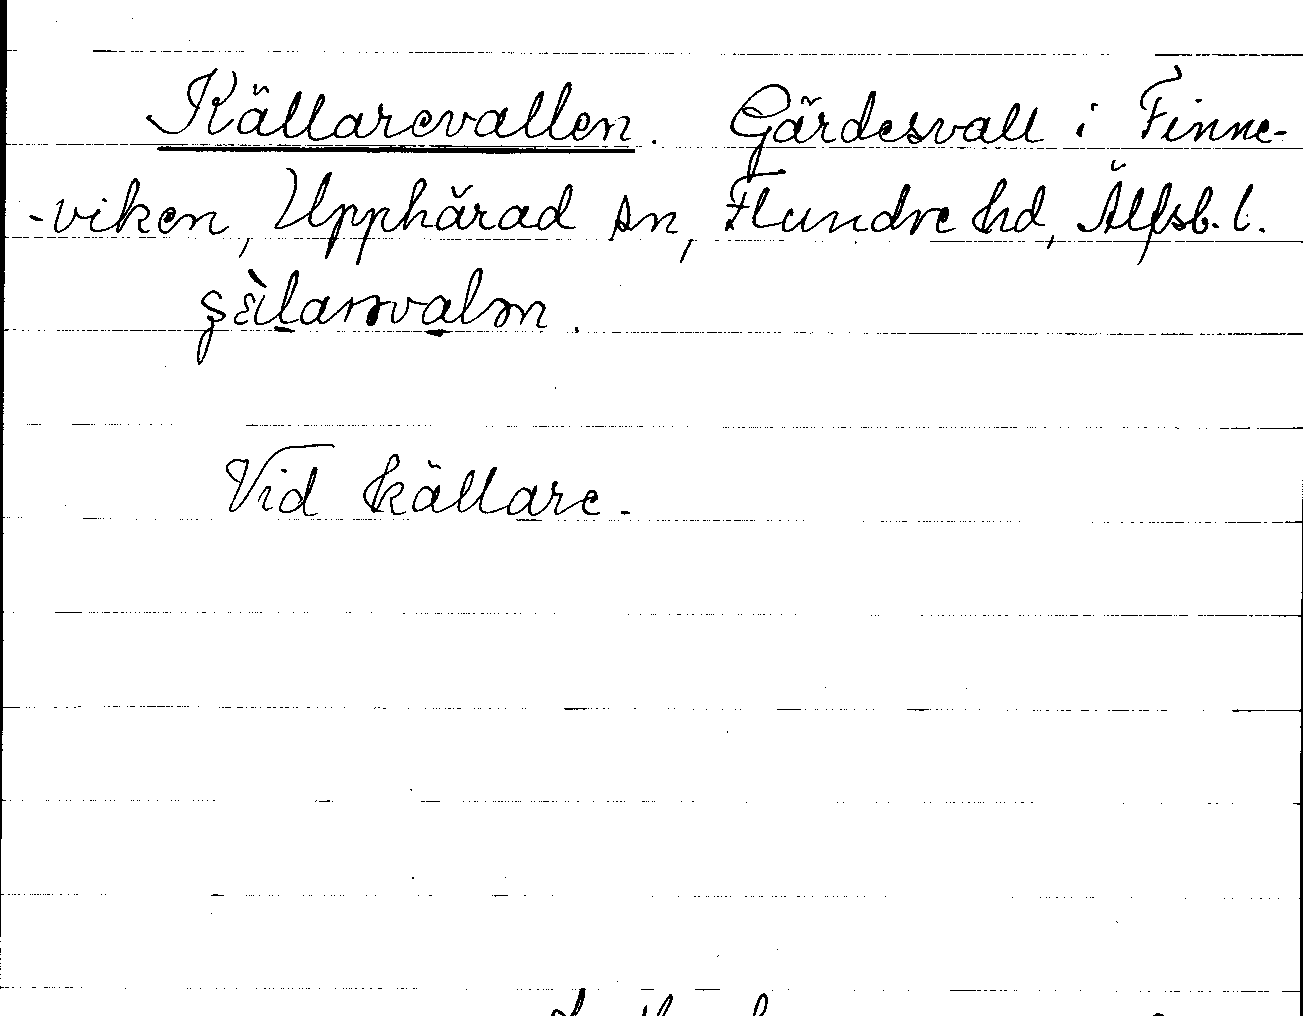 Källarevallen. Gärdesvall i Finne-
-viken, Upphärad sn, Flundre hd, Älfsb. l.
Vid källare.